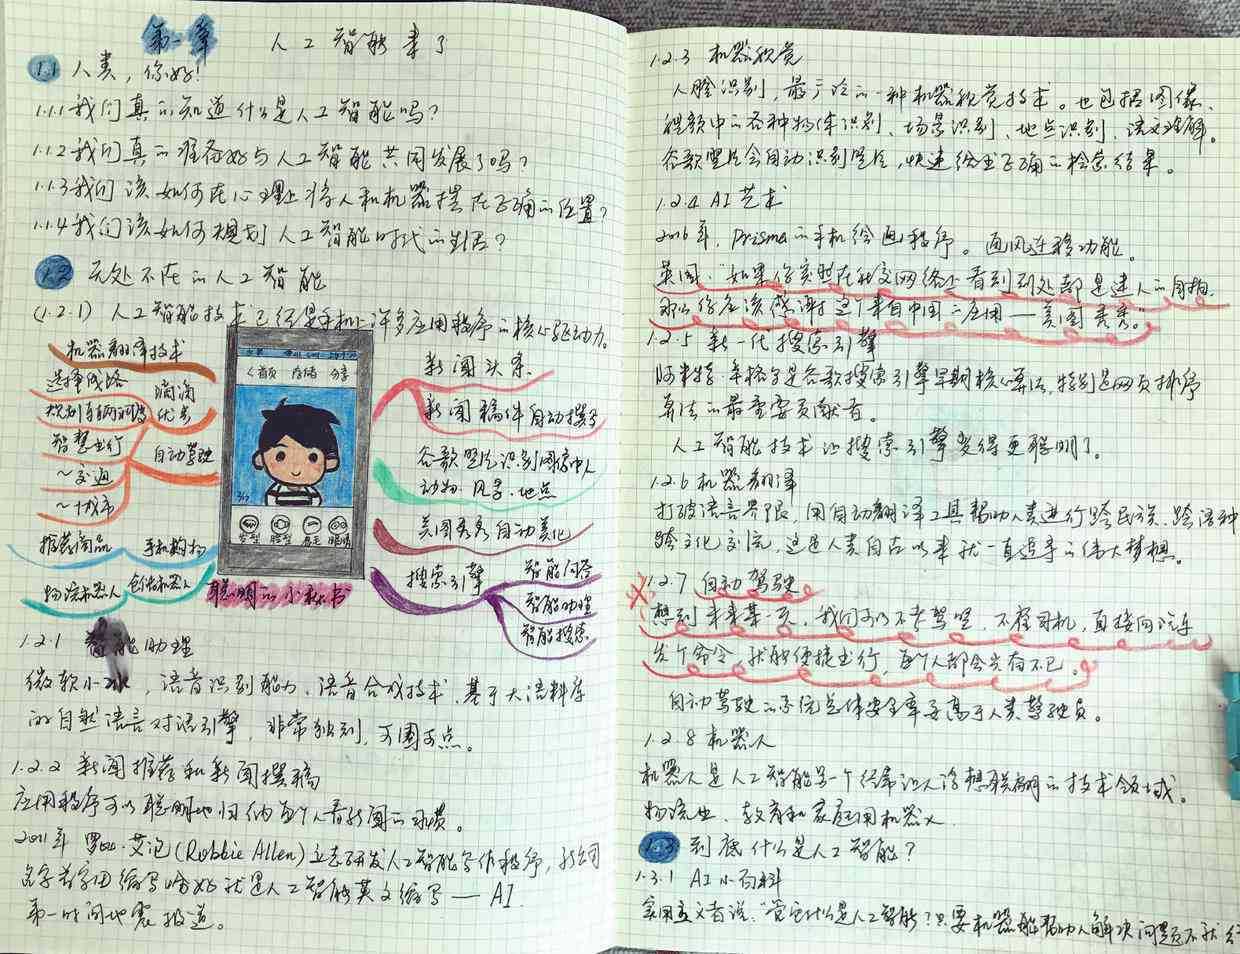 第一章 人工智能来了
1.1 人类，你好！
1.1.1 我们真的知道什么是人工智能吗？
1.1.2 我们真的准备好与人工智能共同发展了吗？
1.1.3 我们该如何在心理上将人和机器摆在正确的位置？
1.1.4 我们该如何规划人工智能时代的生活？
1.2 无处不在的人工智能
(1.2.1) 人工智能技术已经是手机上许多应用程序的核心驱动力。
机器翻译技术
选择线路
滴滴
规划车辆调度
优步
智慧出行
自动驾驶
～交通
～城市
推荐商品
手机购物
物流机器人
仓储机器人
<首页 存储 分享
发型 脸型 眉毛 眼睛
聪明的小秘书
新闻头条
新闻稿件自动撰写
谷歌照片识别图像中人
动物·风景·地点
美图秀秀自动美化
搜索引擎
智能问答
智能助理
智能搜索
1.2.1 智能助理
微软小冰，语音识别能力，语音合成技术，基于大语料库
的自然语言对话引擎，非常独到，可圈可点。
1.2.2 新闻推荐和新闻撰稿
应用程序可以聪明地归纳每个人看新闻的习惯。
2011年 罗比·艾伦(Robbie Allen)立志研发人工智能写作程序，新公司
名字首字母缩写恰好就是人工智能英文缩写——AI.
第一时间地震报道。
1.2.3 机器视觉
人脸识别，最广泛的一种机器视觉技术。也包括图像、
视频中的各种物体识别、场景识别、地点识别、语义理解。
谷歌照片会自动识别照片，快速给出正确的检索结果。
1.2.4 AI艺术
2016年，Prisma的手机绘画程序。画风迁移功能。
英国，“如果你突然在社交网络上看到到处都是迷人的自拍，
那么你应该感谢这个来自中国的应用——美图秀秀。”
1.2.5 新一代搜索引擎
阿米特·辛格尔是谷歌搜索引擎早期核心算法，特别是网页排序
算法的最重要贡献者。
人工智能技术让搜索引擎变得更聪明了。
1.2.6 机器翻译
打破语言界限，用自动翻译工具帮助人类进行跨民族、跨语种
跨文化交流，这是人类自古以来就一直追寻的伟大梦想。
1.2.7 自动驾驶
想到未来某一天，我们可以不考驾照，不雇司机，直接向汽车
发个命令，就能便捷出行，每个人都会兴奋不已。
自动驾驶的系统总体安全率要高于人类驾驶员。
1.2.8 机器人
机器人是人工智能另一个经常让人浮想联翩的技术领域。
物流业、教育和家庭用机器人
1.3 到底什么是人工智能？
1.3.1 AI小百科
实用主义者说：“管它什么是人工智能？只要机器能帮助人解决问题不就行